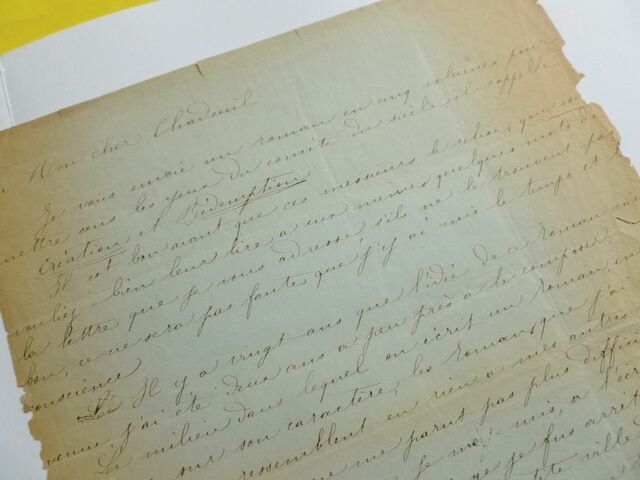 Mon cher Chadeuil
Je vous envoie un roman en cinq volumes pour
mettre sous les yeux du comité du siècle il s'appelle
Création et Rédemption
Il est bon avant que ces messieurs le relisent, que
vouliez bien leur lire à eux mêmes quelques mots de
la lettre que je vous adresse, s'ils ne le trouvent pas
bon, ce ne sera pas faute que j'y ai mis le temps et
conscience
Il y a vingt ans que l'idée de ce roman
venue, j'ai été deux ans à peu près à le composer,
Le milieu dans lequel on écrit un roman,
sur son caractère, les romans que j'ai
ressemblent en rien à mes autres
me parut pas plus diffici
je me mis, à l'écr
je fus arrêt
ville